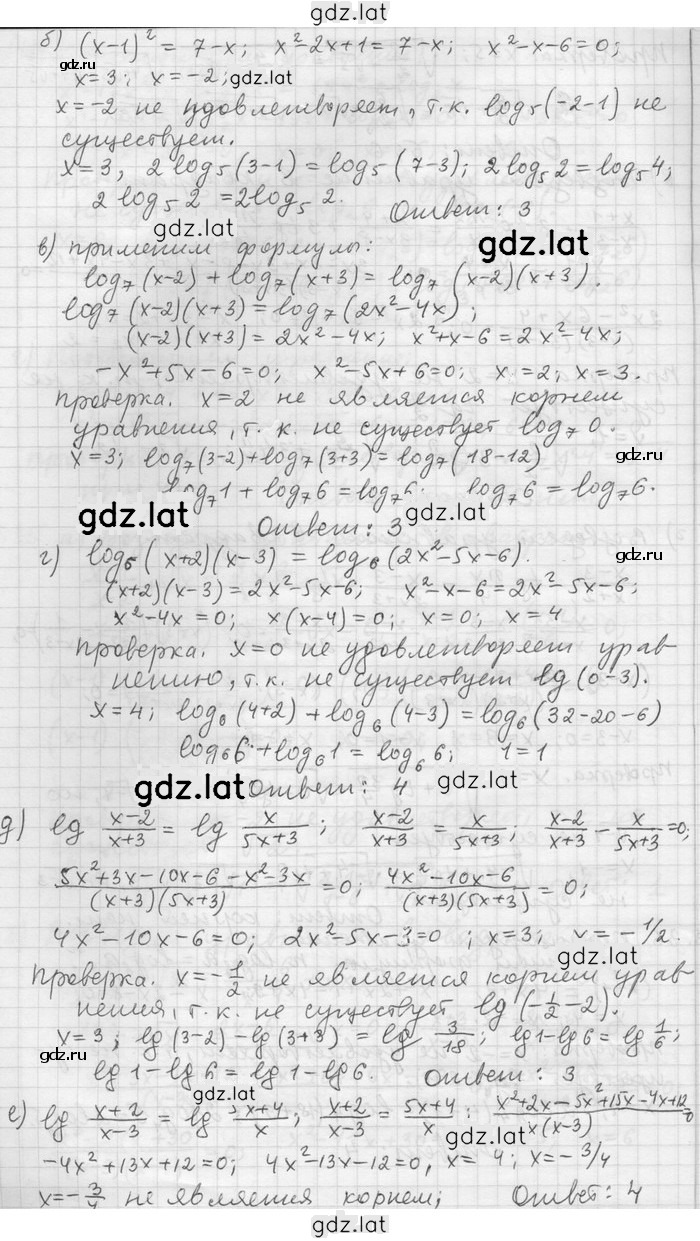 gdz.lat
б) (x-1)² = 7-x; x²-2x+1 = 7-x; x²-x-6=0;
gdz.lat
x=3; x=-2; gdz.lat
x=-2 не удовлетворяет, т.к. log₅(-2-1) не
существует.
x=3, 2log₅(3-1) = log₅(7-3); 2log₅2 = log₅4;
2log₅2 = 2log₅2. Ответ: 3
gdz.lat
в) применим формулы: gdz.lat
log₇(x-2) + log₇(x+3) = log₇(x-2)(x+3).
log₇(x-2)(x+3) = log₇(2x²-4x);
(x-2)(x+3) = 2x²-4x; x²+x-6 = 2x²-4x;
-x²+5x-6=0; x²-5x+6=0; x=2; x=3.
Проверка. x=2 не является корнем
уравнения, т.к. не существует log₇0.
x=3; log₇(3-2)+log₇(3+3) = log₇(18-12) gdz.lat
log₇1 + log₇6 = log₇6. log₇6 = log₇6.
gdz.lat Ответ: 3 gdz.lat
г) log₆(x+2)(x-3) = log₆(2x²-5x-6). gdz.lat
(x+2)(x-3) = 2x²-5x-6; x²-x-6 = 2x²-5x-6;
x²-4x=0; x(x-4)=0; x=0; x=4
Проверка. x=0 не удовлетворяет урав
нению, т.к. не существует lg(0-3).
x=4; log₆(4+2)+log₆(4-3) = log₆(32-20-6)
log₆6+log₆1 = log₆6; 1=1
gdz.lat Ответ: 4 gdz.lat
д) lg (x-2)/(x+3) = lg x/(5x+3); (x-2)/(x+3) = x/(5x+3); (x-2)/(x+3) - x/(5x+3) = 0;
(5x²+3x-10x-6-x²-3x)/((x+3)(5x+3)) = 0; (4x²-10x-6)/((x+3)(5x+3)) = 0;
4x²-10x-6=0; 2x²-5x-3=0; x=3; x=-1/2.
gdz.lat
Проверка. x=-1/2 не является корнем урав
нения, т.к. не существует lg(-1/2-2).
x=3; lg(3-2)-lg(3+3) = lg 3/18; lg1-lg6 = lg 1/6;
gdz.lat
lg1-lg6 = lg1-lg6. Ответ: 3
gdz.lat
е) lg (x+2)/(x-3) = lg (5x+4)/x; (x+2)/(x-3) = (5x+4)/x; (x²+2x-5x²+15x-4x+12)/(x(x-3))
gdz.lat
-4x²+13x+12=0; 4x²-13x-12=0, x=4; x=-3/4
x=-3/4 не является корнем; Ответ: 4
gdz.lat